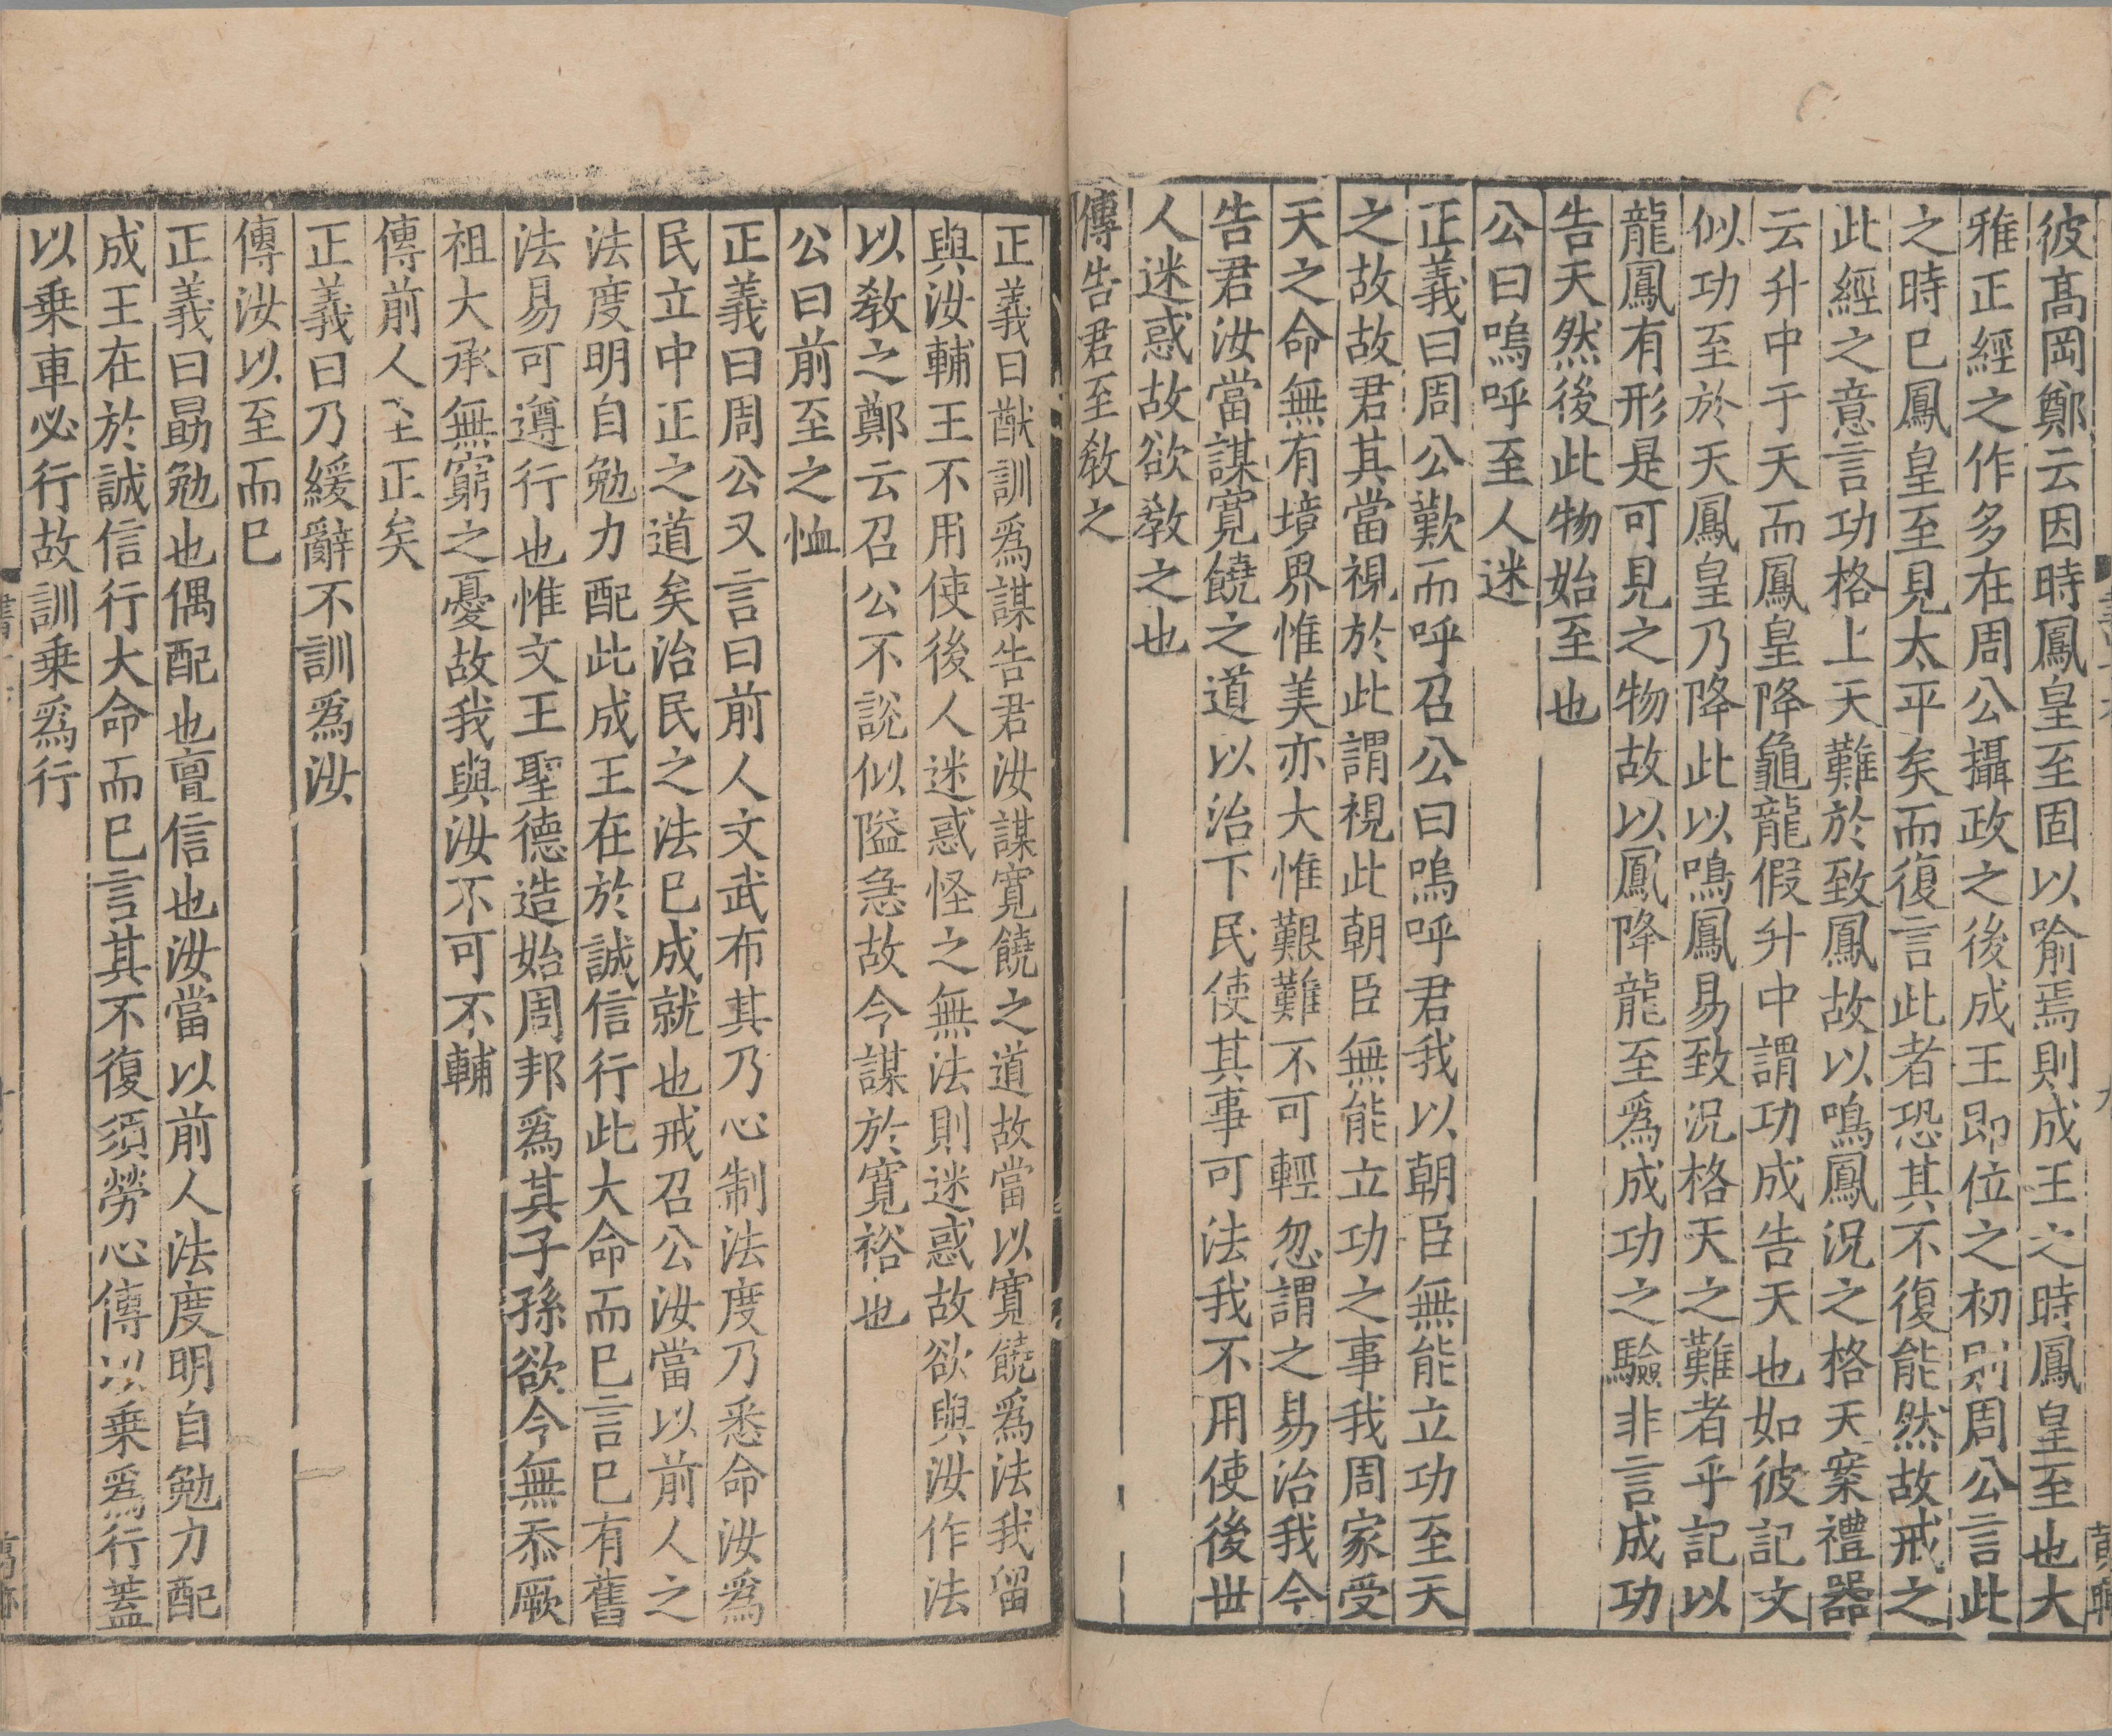 彼高岡鄭云因時鳳皇至固以喻焉則成王之時鳳皇至也大
雅正經之作多在周公攝政之後成王即位之初則周公言此
之時已鳳皇至見太平矣而復言此者恐其不復能然故戒之
此經之意言功格上天難於致鳳故以鳴鳳況之格天案禮器
云升中于天而鳳皇降龜龍假升中謂功成告天也如彼記文
似功至於天鳳皇乃降此以鳴鳳易致況格天之難者乎記以
龍鳳有形是可見之物故以鳳降龍至為成功之驗非言成功
告天然後此物始至也
公曰嗚呼至人迷
正義曰周公歎而呼召公曰嗚呼君我以朝臣無能立功至天
之故故君其當視於此謂視此朝臣無能立功之事我周家受
天之命無有境界惟美亦大惟艱難不可輕忽謂之易治我今
告君汝當謀寬饒之道以治下民使其事可法我不用使後世
人迷惑故欲教之也
傳告君至教之
正義曰猷訓為謀告君汝謀寬饒之道故當以寬饒為法我留
與汝輔王不用使後人迷惑怪之無法則迷惑故欲與汝作法
以教之鄭云召公不說似隘急故今謀於寬裕也
公曰前至之恤
正義曰周公又言曰前人文武布其乃心制法度乃悉命汝為
民立中正之道矣治民之法已成就也戒召公汝當以前人之
法度明自勉力配此成王在於誠信行此大命而已言已有舊
法易可遵行也惟文王聖德造始周邦為其子孫欲令無忝厥
祖大承無窮之憂故我與汝不可不輔
傳前人至正矣
正義曰乃緩辭不訓為汝
傳汝以至而已
正義曰勗勉也偶配也亶信也汝當以前人法度明自勉力配
成王在於誠信行大命而已言其不復須勞心傳以乗為行蓋
以乗車必行故訓乗為行